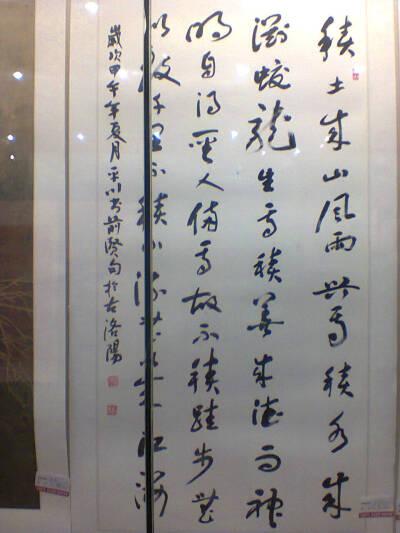 積土成山風雨興焉積水成
淵蛟龍生焉積善成德而神
明自得聖人備焉故不積跬步無
以致千里不積小流無以成江海
歲次甲午年夏月平川书前賢句於古洛陽